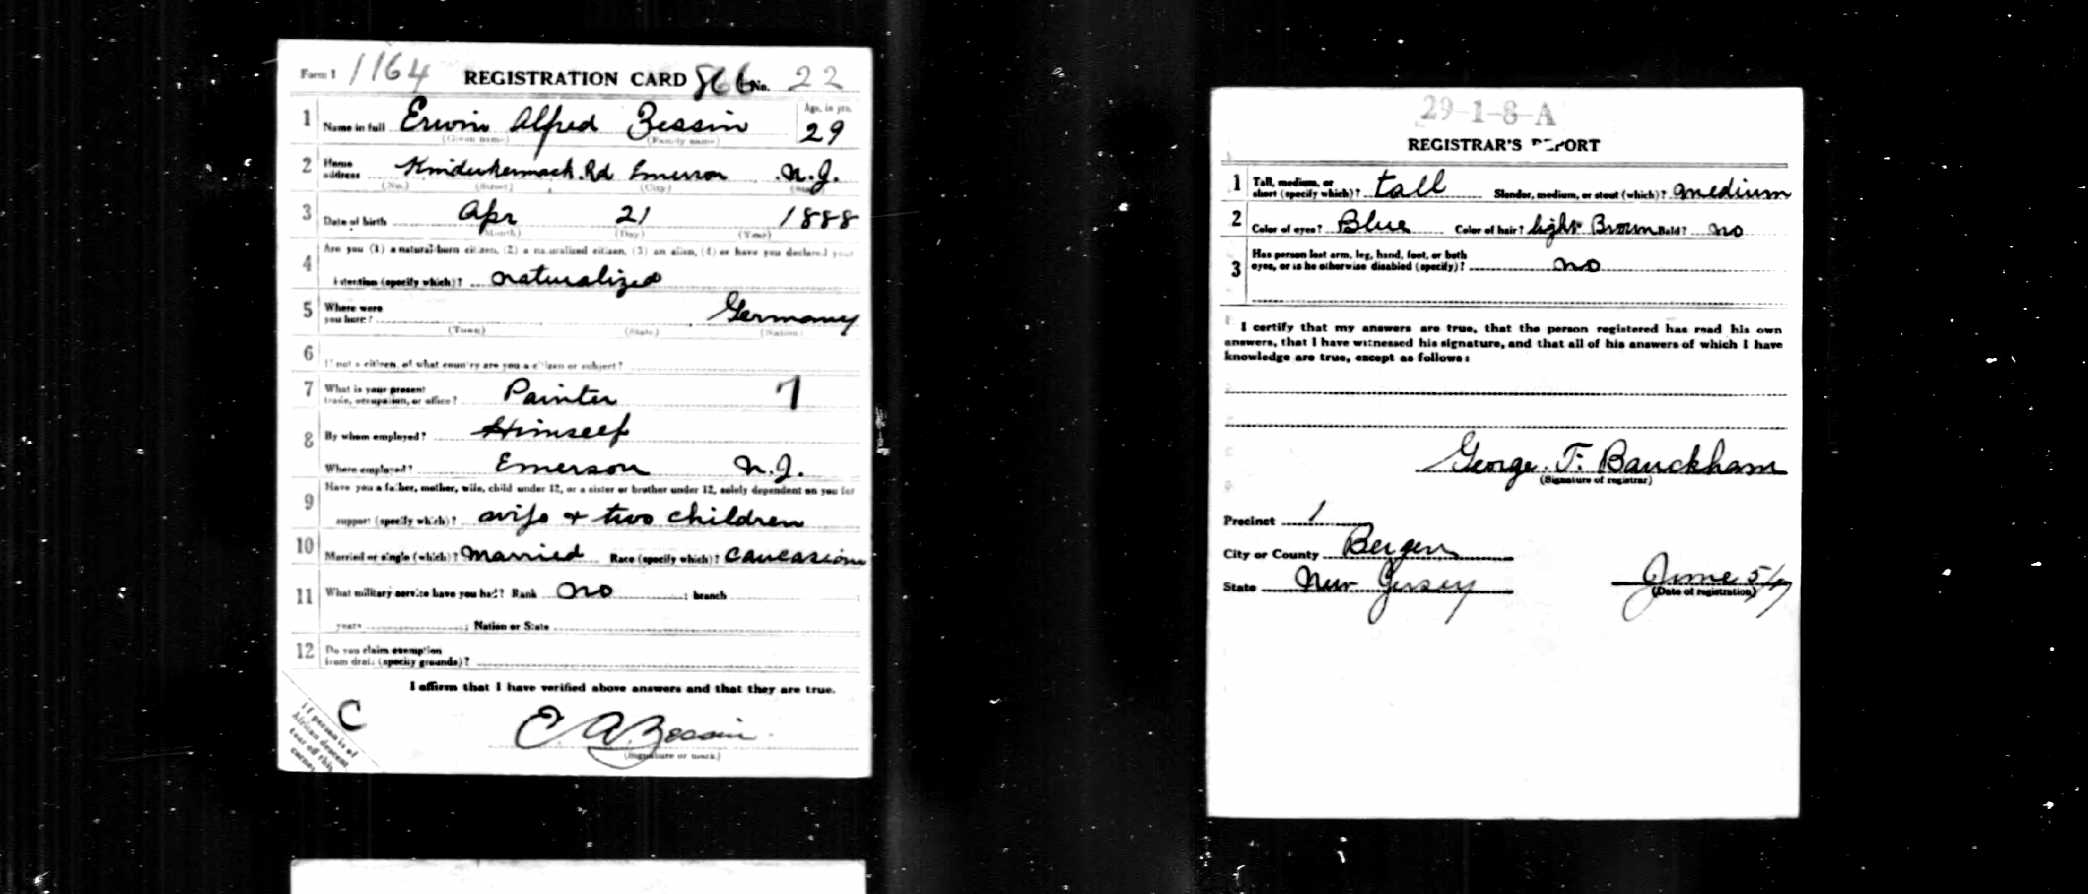 Form 1 1164 REGISTRATION CARD 866 No. 22
1 Name in full Erwin Alfred Zessin Age, in yrs. 29
(Given name) (Family name)
2 Home address Kinderkermack Rd Emerson N.J.
(No.) (Street) (City)
3 Date of birth Apr 21 1888
(Month) (Day) (Year)
4 Are you (1) a natural-born citizen, (2) a naturalized citizen, (3) an alien, (4) or have you declared your
intention (specify which)? naturalized
5 Where were you born? Germany
(Town) (State) (Nation)
6 If not a citizen, of what country are you a citizen or subject?
7 What is your present trade, occupation, or office? Painter 7
8 By whom employed? Himself
Where employed? Emerson N.J.
9 Have you a father, mother, wife, child under 12, or a sister or brother under 12, solely dependent on you for
support (specify which)? wife + two children
10 Married or single (which)? Married Race (specify which)? Caucasion
11 What military service have you had? Rank no ; branch
years ; Nation or State
12 Do you claim exemption
from draft (specify grounds)?
I affirm that I have verified above answers and that they are true.
E. A. Zessin
(Signature or mark)
C
If person is of
African descent
tear off this
corner
29-1-8-A
REGISTRAR'S REPORT
1 Tall, medium, or short (specify which)? tall Slender, medium, or stout (which)? medium
2 Color of eyes? Blue Color of hair? light Brown Bald? no
3 Has person lost arm, leg, hand, foot, or both
eyes, or is he otherwise disabled (specify)? no
I certify that my answers are true, that the person registered has read his own
answers, that I have witnessed his signature, and that all of his answers of which I have
knowledge are true, except as follows:
George. F. Bauckham
(Signature of registrar)
Precinct 1
City or County Bergen
State New Jersey June 5/17
(Date of registration)